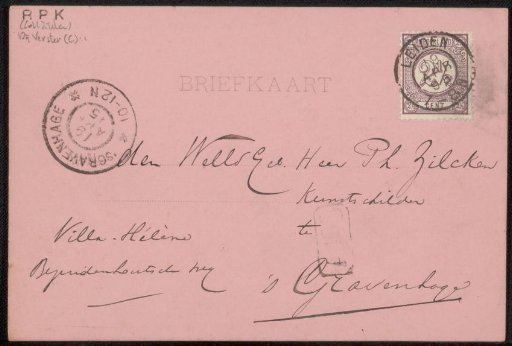 R P K
(Coll. Zilcken)
Verster (C):1
LEIDEN
CENT
BRIEFKAART
'SGRAVENHAGE
10-12N
den WelEd. Heer Ph. Zilcken
Kunstschilder
te
Villa-Hélène
Bezuidenhoutsche weg
's Gravenhage